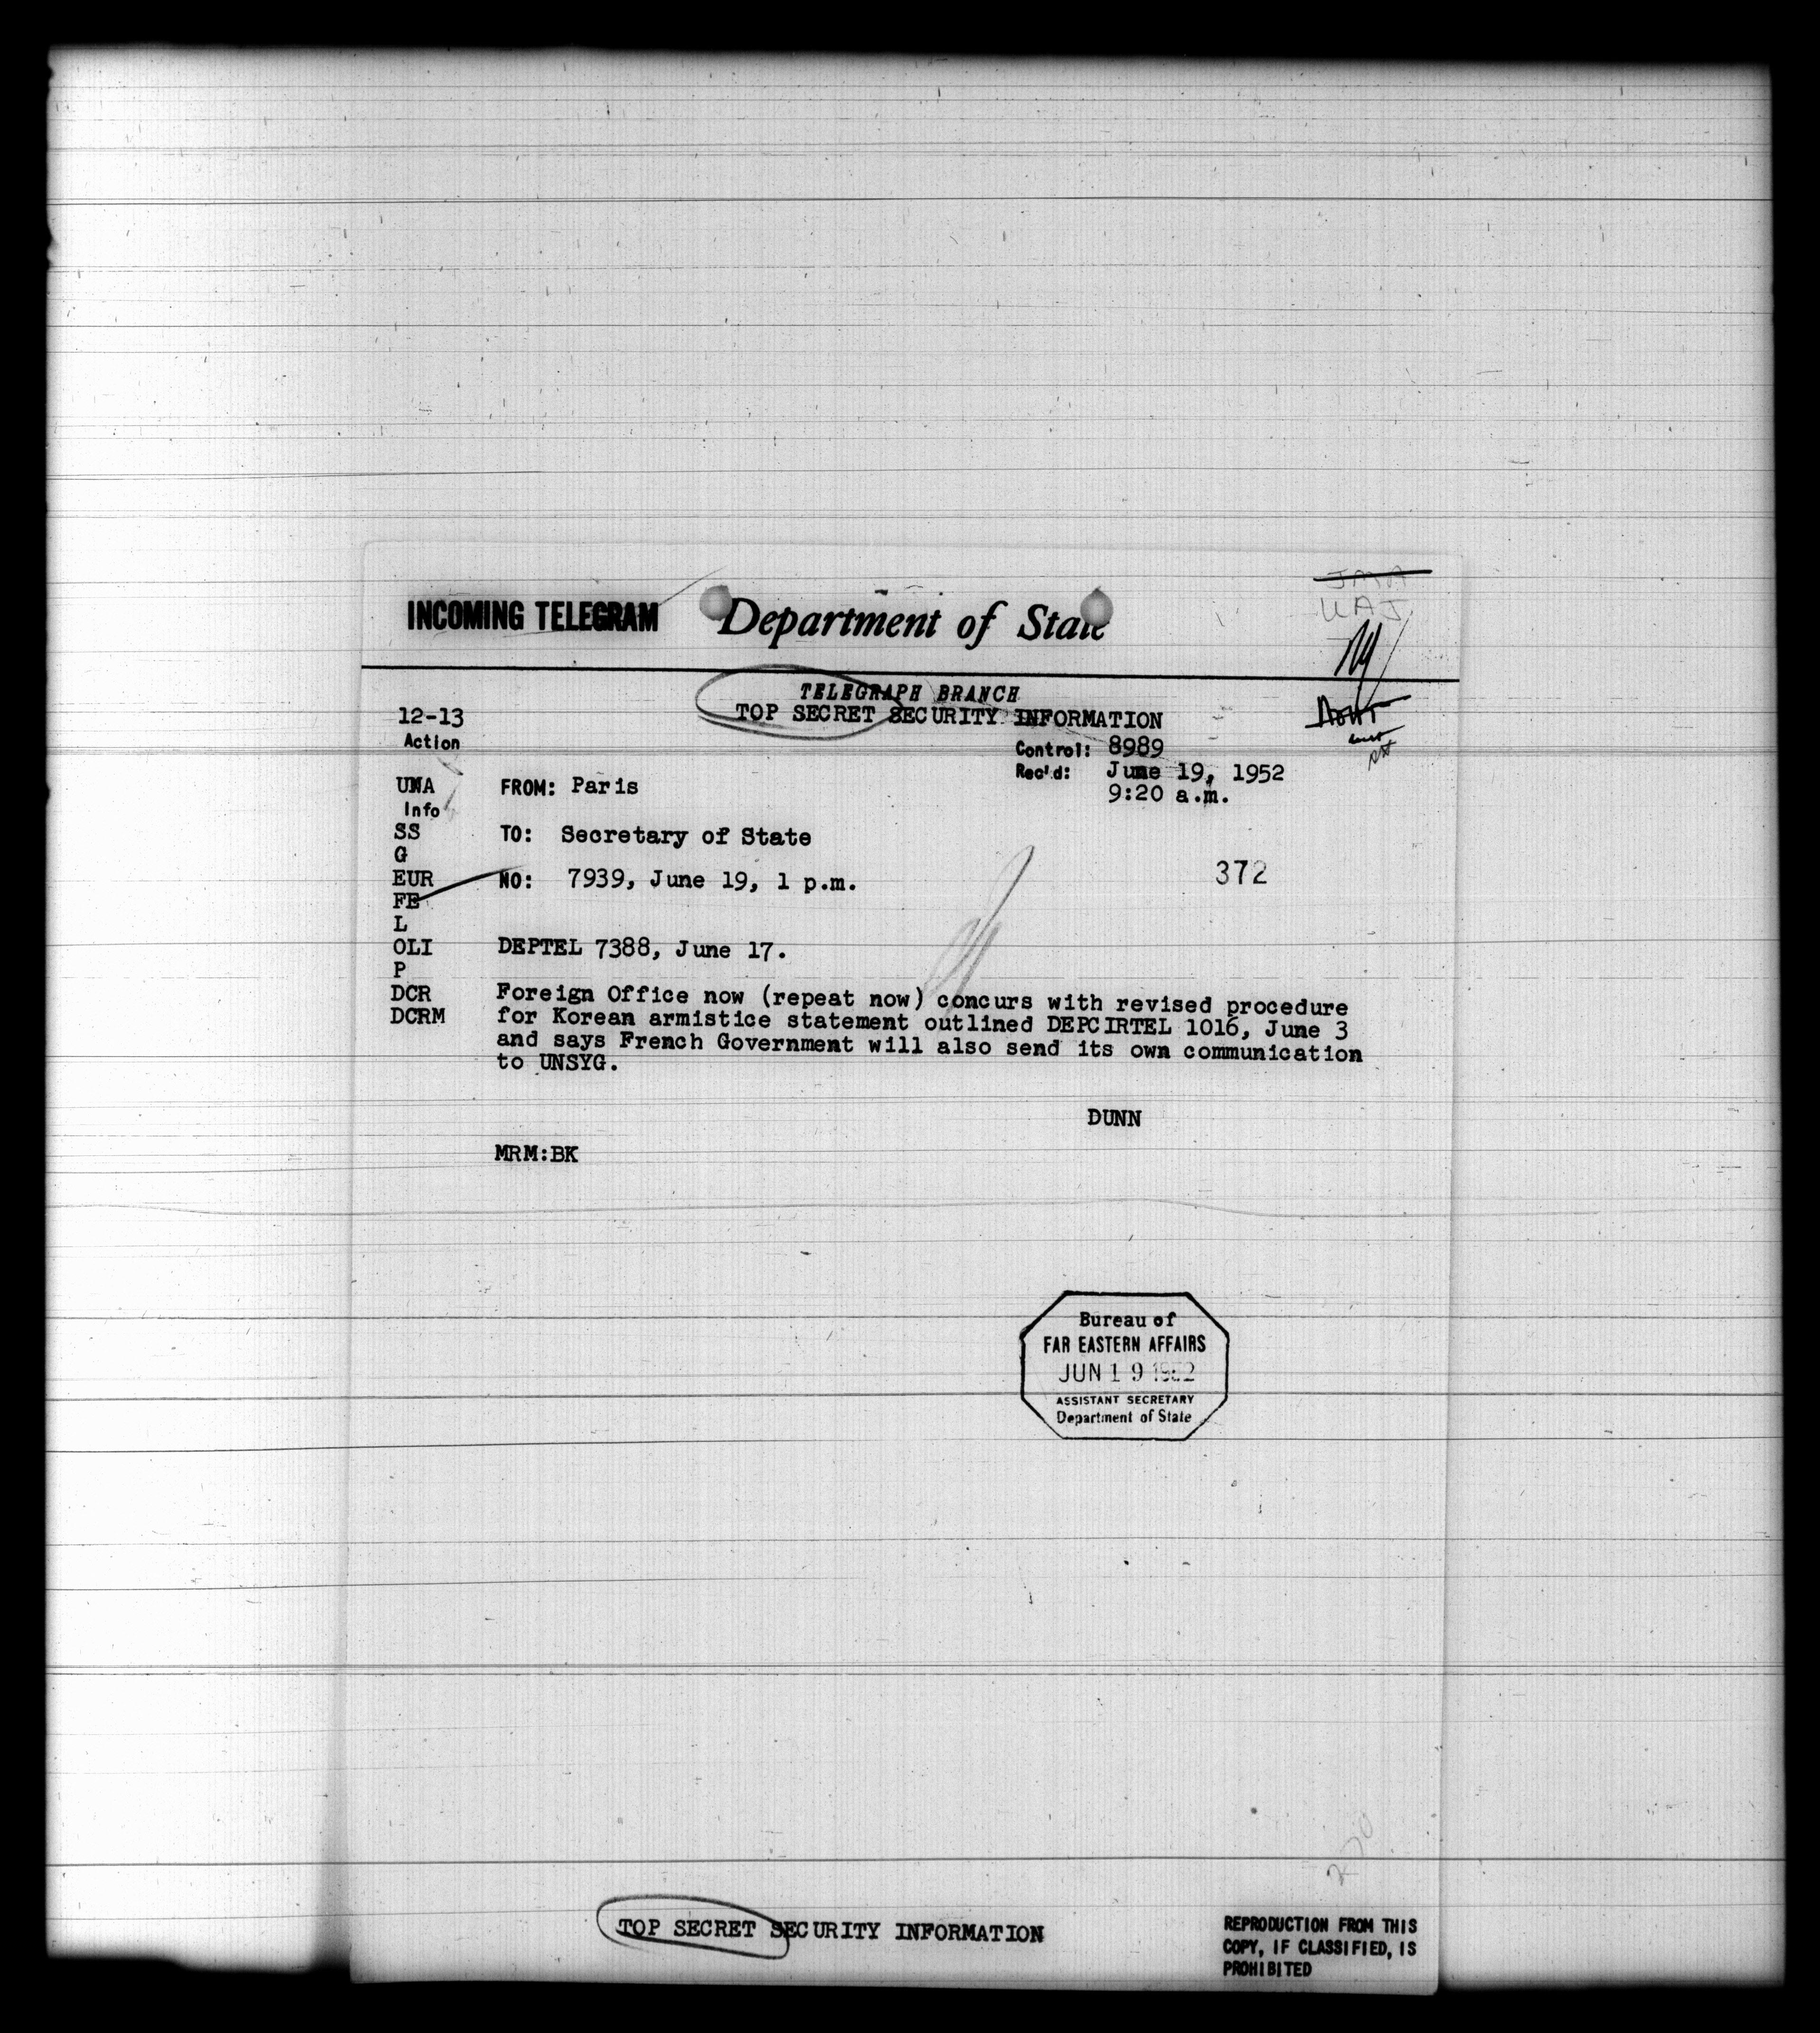 INCOMING TELEGRAM Department of State
UAJ
TELEGRAPH BRANCH
TOP SECRET SECURITY INFORMATION
12-13
Action
Control: 8989
Rec'd: June 19, 1952
9:20 a.m.
UNA
Info
FROM: Paris
SS
TO: Secretary of State
G
EUR
NO: 7939, June 19, 1 p.m.
372
FE
L
OLI
DEPTEL 7388, June 17.
P
DCR
DCRM
Foreign Office now (repeat now) concurs with revised procedure
for Korean armistice statement outlined DEPCIRTEL 1016, June 3
and says French Government will also send its own communication
to UNSYG.
DUNN
MRM:BK
Bureau of
FAR EASTERN AFFAIRS
JUN 19 1952
ASSISTANT SECRETARY
Department of State
270
TOP SECRET SECURITY INFORMATION
REPRODUCTION FROM THIS
COPY, IF CLASSIFIED, IS
PROHIBITED